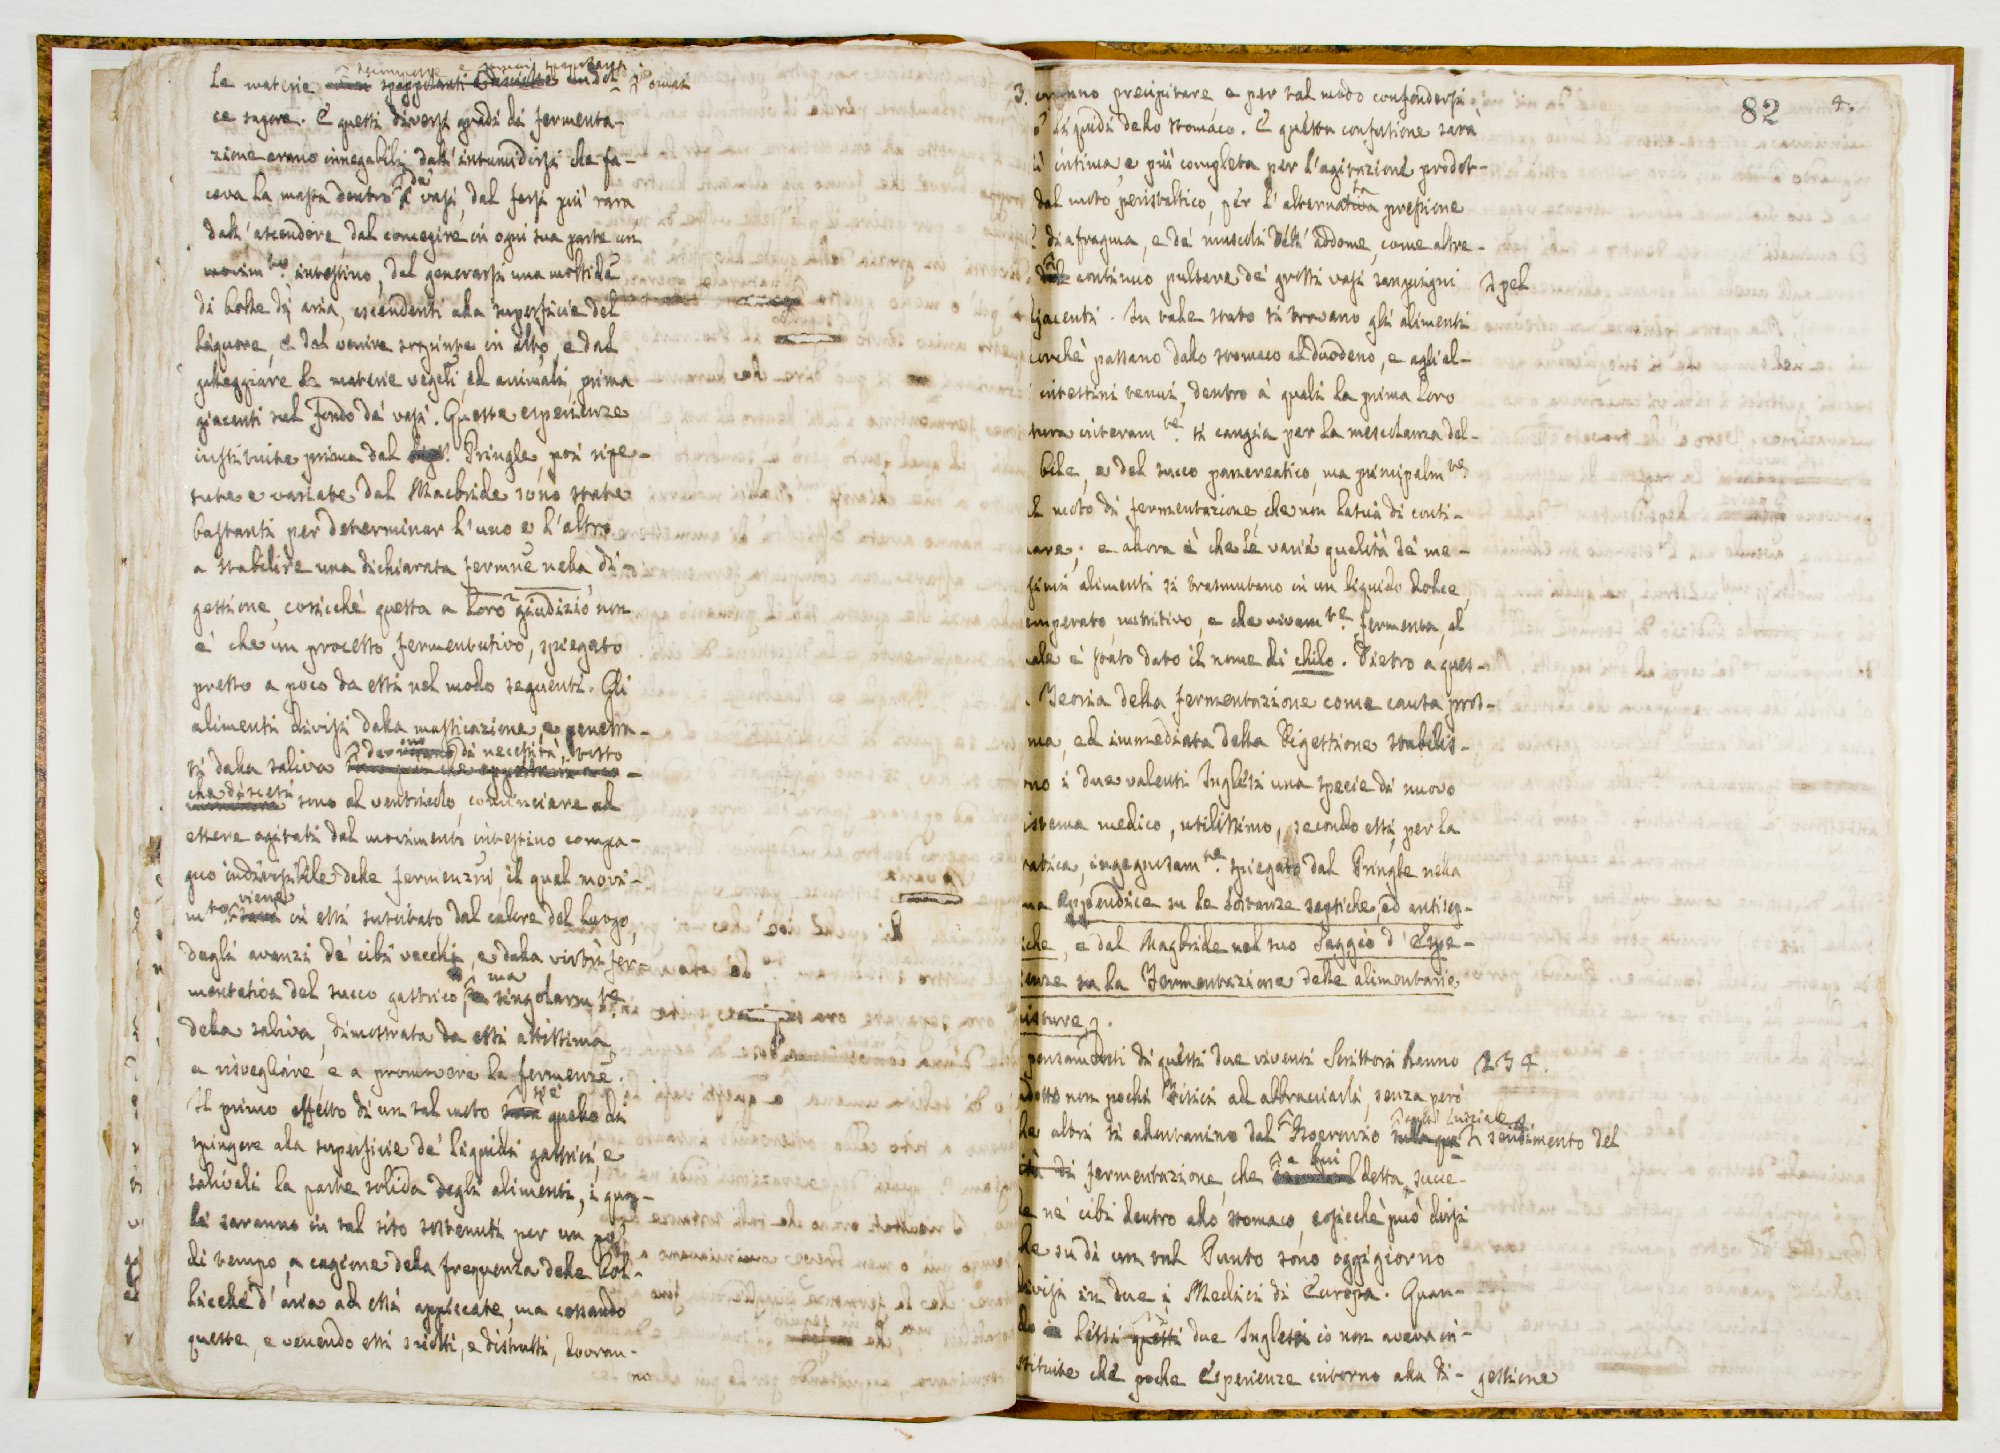 Le materie
ce sapore. E questi diversi gradi di fermenta-
zione erano innegabili dall'intumidirsi che fa-
ceva la massa dentro de' vasi, dal farsi più rara
dall'ascendere, dal concepire in ogni sua parte un
movim.to intestino, dal generarsi una moltid.e
di bolle di aria, ascendenti alla superficie del
liquore, e dal venire sospinte in alto, e dal
galleggiare le materie vegeli, ed animali, prima
giacenti nel fondo de' vasi. Queste esperienze
instituite prima dal Pringle, poi ripe-
tute e variate dal Macbride sono state
bastanti per determinar l'uno e l'altro
a stabilire una dichiarata fermne nella di-
gestione, cosicchè questa a loro giudizio non
è che un processo fermentativo, spiegato
presso a poco da essi nel modo seguenti. Gli
alimenti divisi dalla masticazione, e penetra-
ti dalla saliva di necessità, tosto
che discesi sono al ventricolo, cominciare ad
essere agitati dal movimento intestino compa-
gno indivisibile delle fermenzni, il qual movi-
m.to viene in essi suscitato dal calore del luogo,
degli avanzi de' cibi vecchi, e dalla virtù fer-
mentativa del succo gastrico, ma singolarm.te
della saliva, dimostrata da essi attissima
a risvegliare, e a promovere la fermenze.
Il primo effetto di un tal moto si è quello di
spingere alla superficie de' liquidi gastrici, e
salivali la parte solida degli alimenti, i qua-
li saranno in tal sito sostenuti per un po'
di tempo, a cagione della frequenza delle bol-
licche d'aria ad essi appiccate, ma cessando
queste, e venendo essi sciolti, e distrutti, dovran-
no
82 4.
3. vranno precipitare e per tal modo confondersi
liquidi dello stomaco. E questa confusione sarà
intima, e più completa per l'agitazione prodot-
dal moto peristaltico, per l'alterna pressione
diafragma, e de' muscoli dell'addome, come altre-
continuo pulsare de' grossi vasi sanguigni pel
giacenti. In tale stato si trovano gli alimenti
allorchè passano dallo stomaco al duodeno, e agli al-
intestini tenui, dentro a' quali la prima loro
tura interam.te si cangia per la mescolanza del-
bile, e del succo pancreatico, ma principalm.te
moto di fermentazione, che non lascia di conti-
nare; e allora è che le varie qualità de' me-
simi alimenti si trasmutano in un liquido dolce,
temperato, nutritivo, e che vivam.te fermenta, al
quale è stato dato il nome di chilo. Dietro a ques-
Teoria della fermentazione come causa pros-
ma, ed immediata della Digestione stabilis-
no i due valenti Inglesi una specie di nuovo
sistema medico, utilissimo, secondo essi, per la
pratica, ingegnosam.te spiegato dal Pringle nella
sua Appendice su le sostanze septiche, ed antisep-
tiche, e dal Magbride nel suo Saggio d'Espe-
rienze su la Fermentazione delle alimentarie
misture.
pensamenti di questi due viventi Scrittori hanno 254.
indotto non pochi Fisici ad abbracciarli, senza però
che altri si alontanino dal
di fermentazione, che a lui detta, succe-
de ne' cibi dentro allo stomaco, cosicchè può dirsi
che su di un tal Punto sono oggigiorno
divisi in due i Medici di Europa. Quan-
do lessi questi due Inglesi io non aveva in-
stituite che poche Esperienze intorno alla di-
gestione